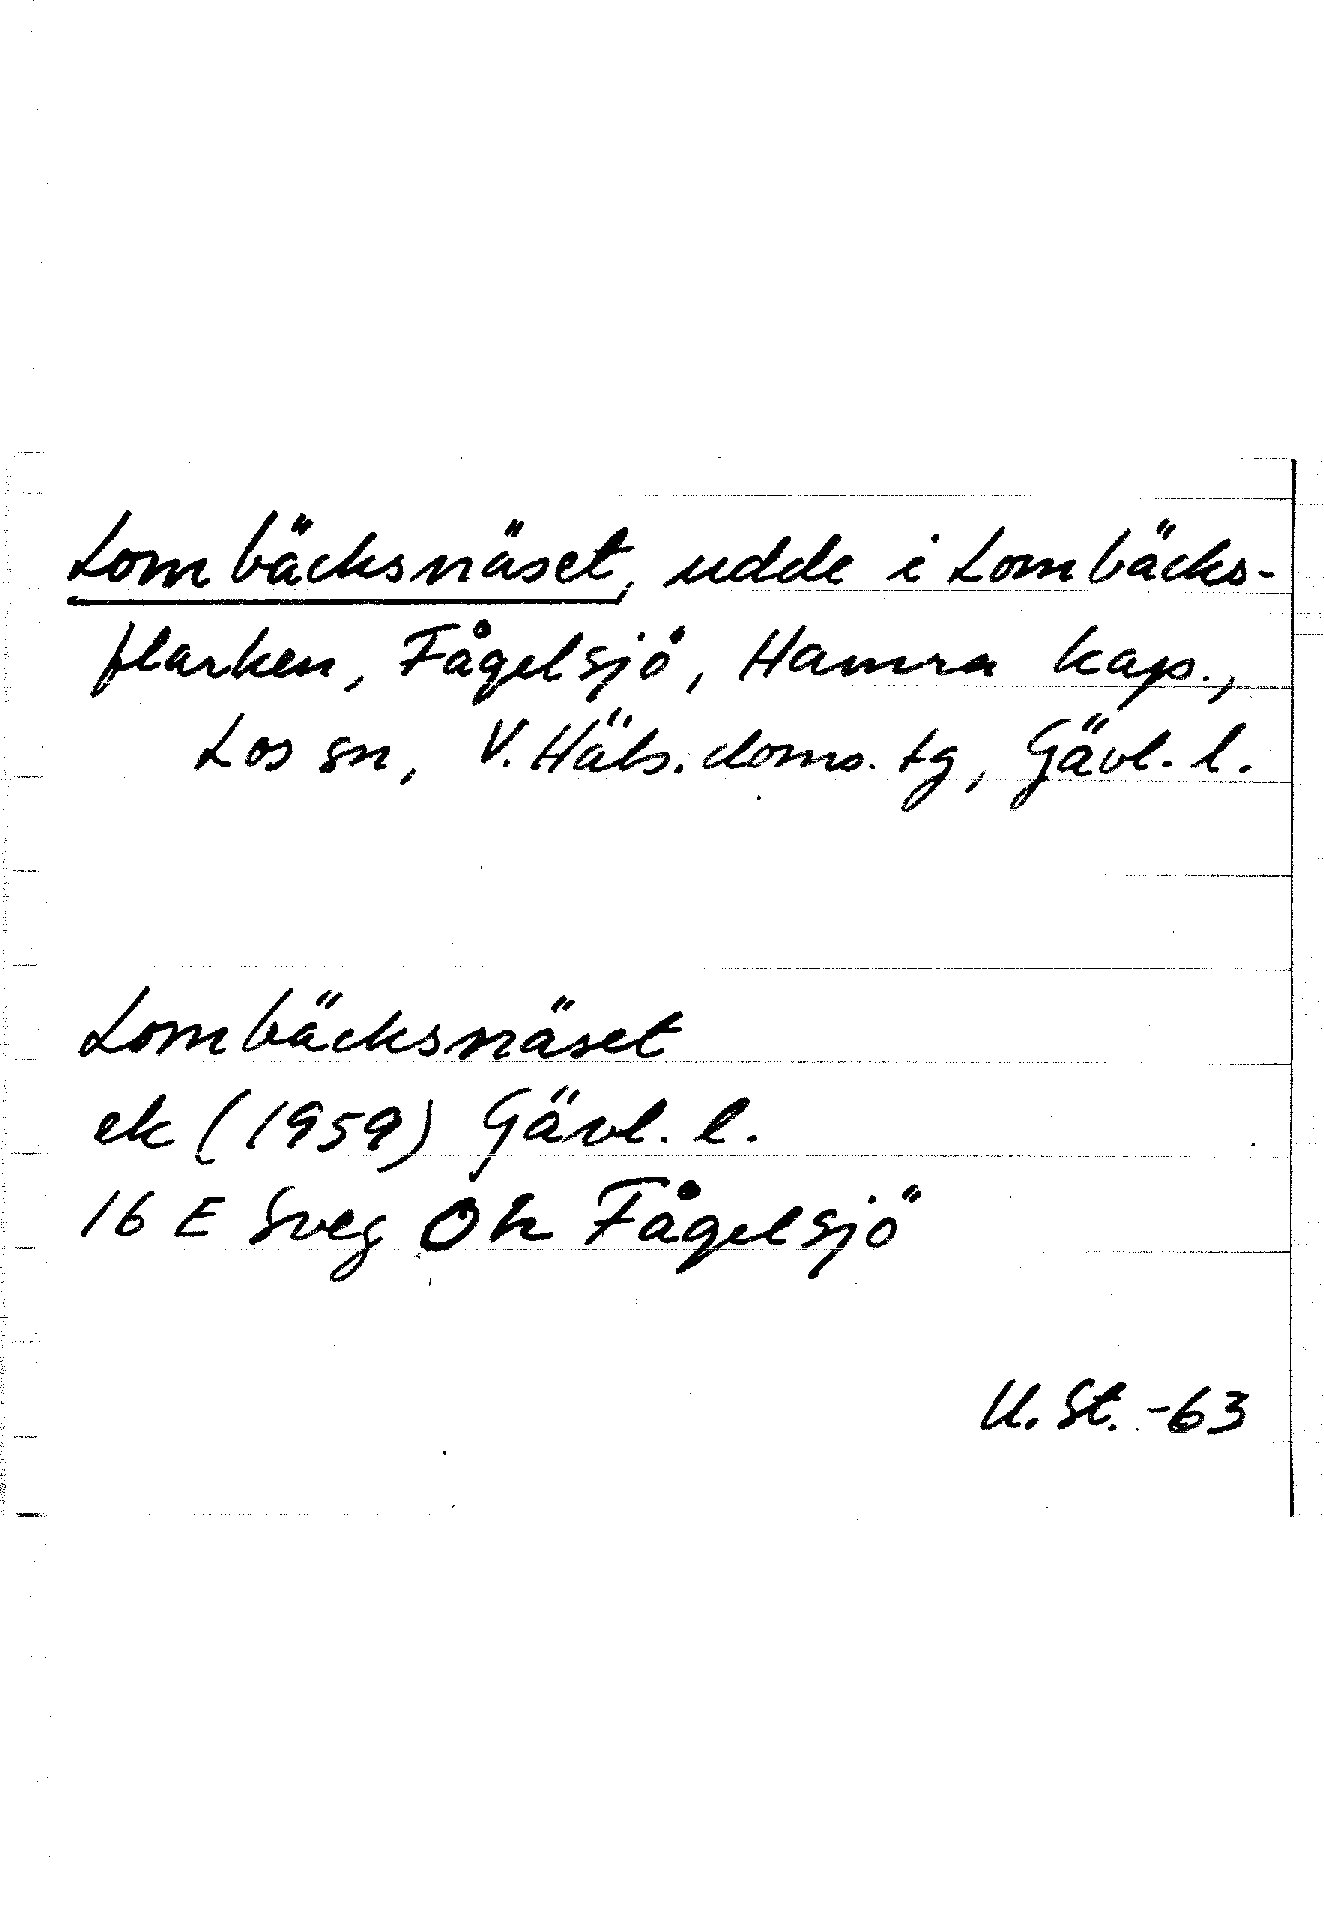 Lombäcksnäset, udde i Lombäcks-
flarken, Fågelsjö, Hamra kap.,
Los sn, V. Häls. doms. tg, Gävl. l.
Lombäcksnäset
ek (1959) Gävl. l.
16 E Sveg 0h Fågelsjö
U. St. -63